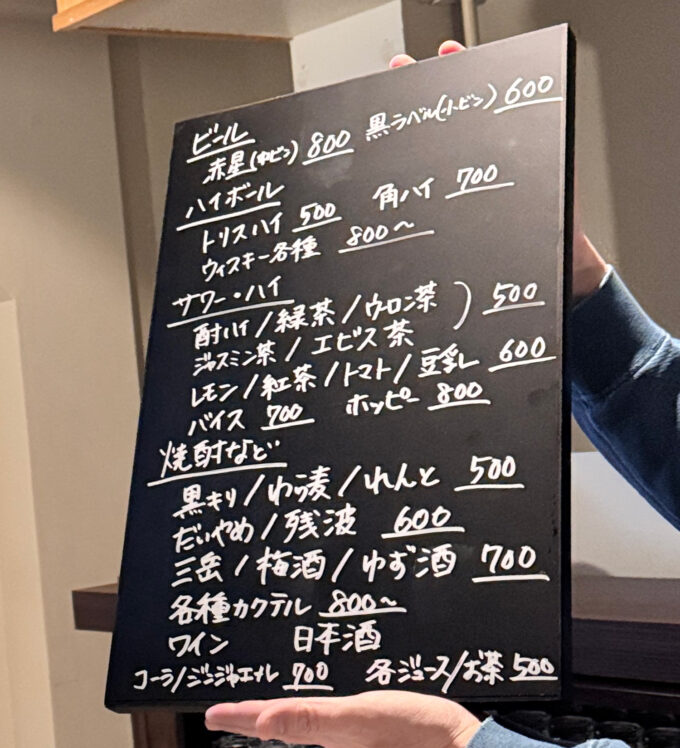 ビール
赤星(中ビン) 800 黒ラベル(小ビン) 600
ハイボール
トリスハイ 500 角ハイ 700
ウィスキー各種 800〜
サワー・ハイ
酎ハイ/緑茶/ウーロン茶
ジャスミン茶/エビス茶 ) 500
レモン/紅茶/トマト/豆乳 600
バイス 700 ホッピー 800
焼酎など
黒キリ/わら麦/れんと 500
だいやめ/残波 600
三岳/梅酒/ゆず酒 700
各種カクテル 800〜
ワイン 日本酒
コーラ/ジンジャエール 700 各ジュース/お茶 500